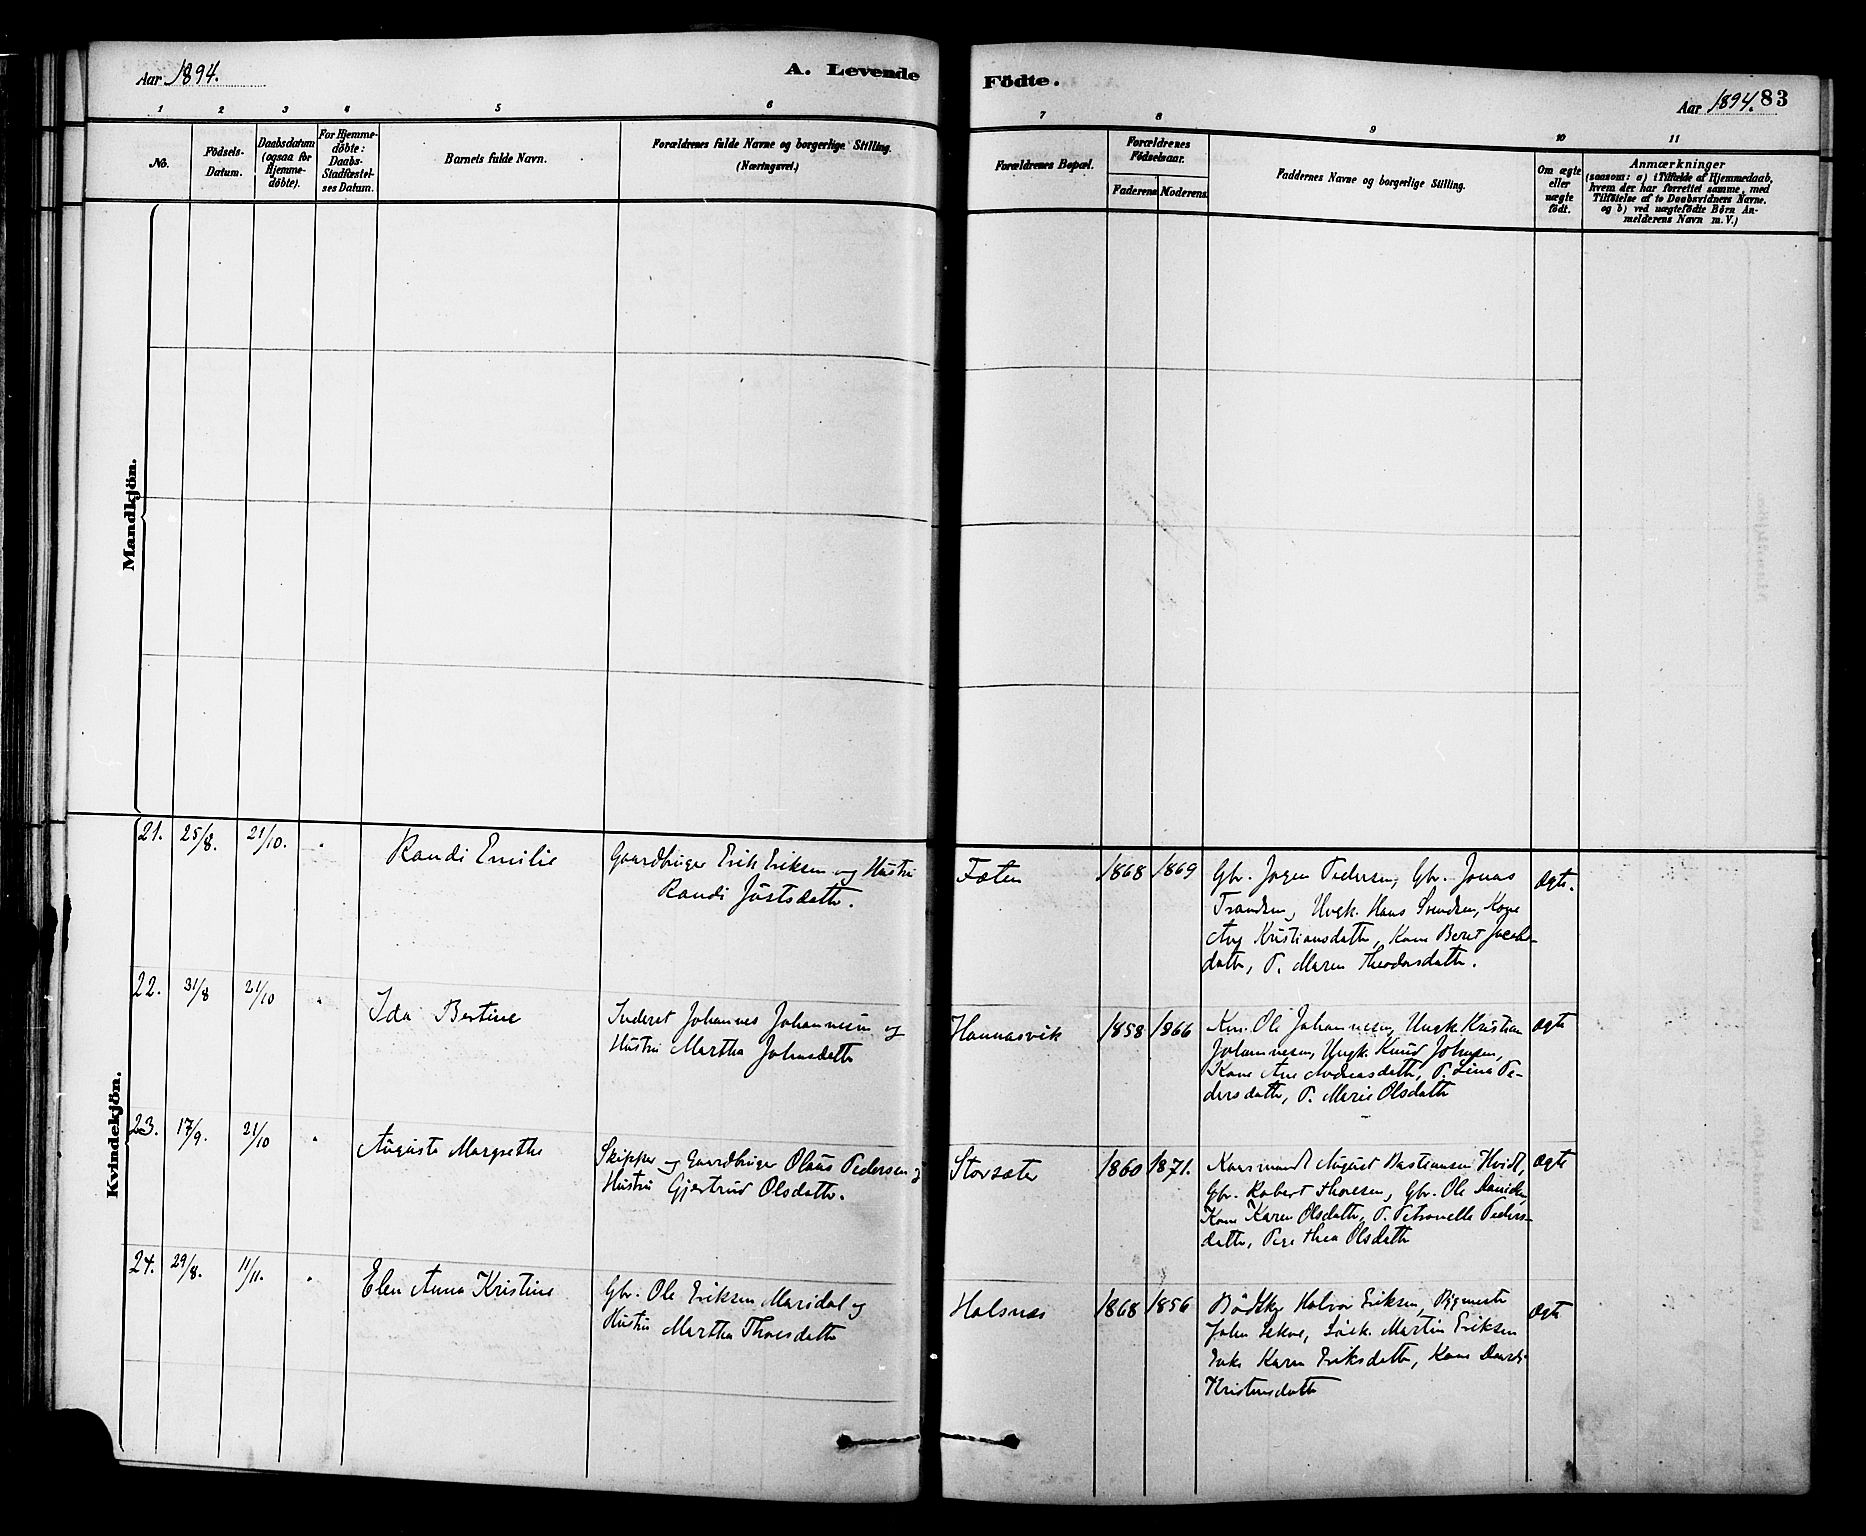 Aar 1894.
A. Levende
Födte.
Aar 1894.
83
1 2 3 4 5 6
7 8 9 10 11
No.
Födsels-
Datum.
Daabsdatum
(ogsaa for
Hjemme-
döbte).
For Hjemme-
döbte:
Daabs-
Stadfæstel-
ses Datum.
Barnets fulde Navn.
Forældrenes fulde Navne og borgerlige Stilling.
(Næringsvei.)
Forældrenes Bopæl.
Forældrenes
Födselsaar.
Faderens Moderens.
Faddernes Navne og borgerlige Stilling.
Om ægte
eller
uægte
födt.
Anmærkninger
(saasom: a) i Tilfælde af Hjemmedaab,
hvem der har forrettet samme, med
Tilföielse af to Daabsvidners Navne.
og b) ved uægtefödte Börn An-
melderens Navn m. V.)
Mandkjön.
Kvindekjön.
21. 25/8. 21/10. Randi Emilie
Gaardbruger Erik Eriksen og Hustru
Randi Justsdatter.
1868 1869
Gbr. Jørgen Pedersen, Gbr. Jonas
Trondsen, Ungk. Hans Svendsen, Kone
Kristiansdatter, Kone Beret Jacobs-
datter, P. Maren Theodorsdatter.
ægte.
22. 31/8 21/10 Ida Bertine
Inderst Johannes Johannesen og
Hustru Martha Johnsdatter
Hannasvik 1858 1866
Ole Johannesen, Ungk. Kristian
Johannesen, Ungk. Knud Johnsen,
Kone Ane Andreasdatter, P. Lina Pe-
dersdatter, P. Marie Olsdatter
ægte
23. 17/9. 21/10 Auguste Margrethe
Skipper og Gaardbruger Olaus Pedersen og
Hustru Gjertrud Olsdatter.
Storsæter 1860 1871.
August Bastiansen Hvidt,
Gbr. Robert Thoresen, Gbr. Ole
Kone Karen Olsdatter, P. Petronelle Peders-
datter, Pige Thea Olsdatter
ægte
24. 29/8. 11/11. Elen Anna Kristine
Gbr. Ole Eriksen Maridal og
Hustru Martha Thoresdatter
Halsnæs 1868 1856
Halvor Eriksen,
John Martin Eriksen
Enke Karen Eriksdatter, Kone
Kristensdatter
ægte